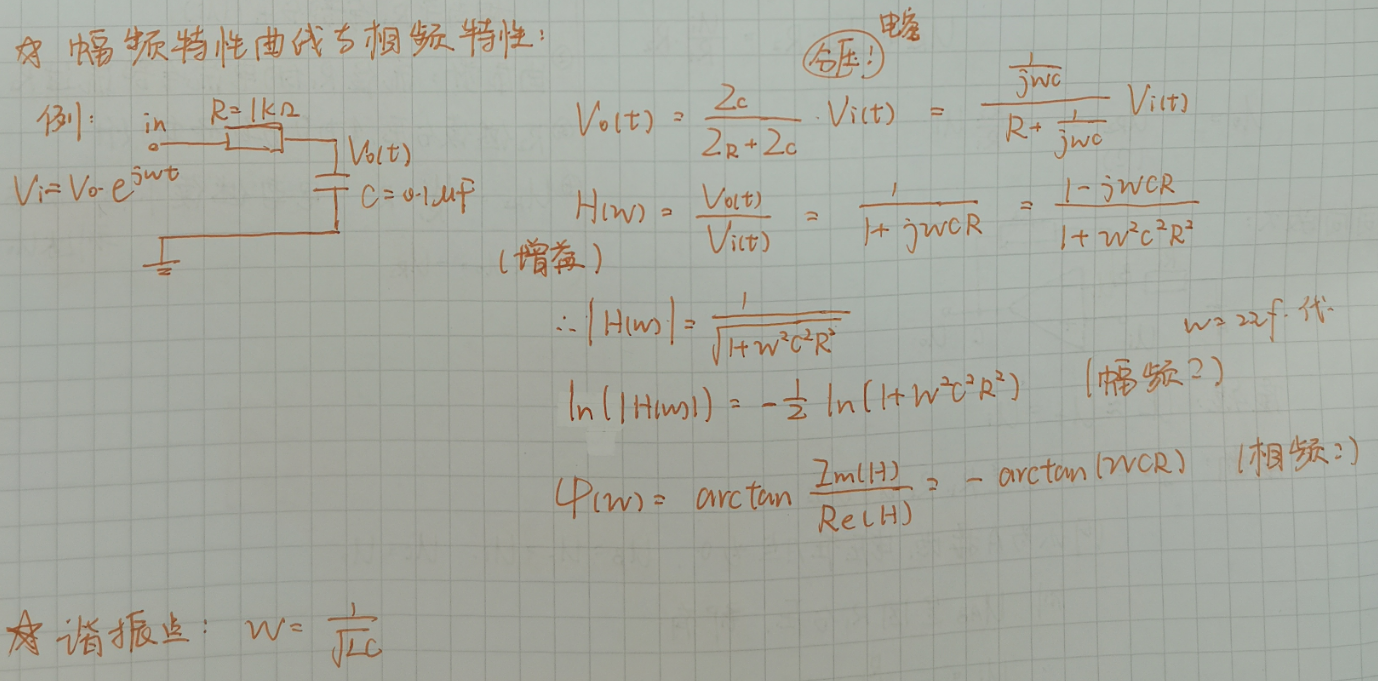 ☆ 幅频特性曲线与相频特性：
例：
in
R=1kΩ
Vi=V0·e^{jwt}
Vo(t)
C=0.1μF
电容
分压！
Vo(t) = \frac{Zc}{Z_R+Zc}·Vi(t) = \frac{\frac{1}{jwc}}{R+\frac{1}{jwc}} Vi(t)
H(w) = \frac{Vo(t)}{Vi(t)} = \frac{1}{1+jwCR} = \frac{1-jwCR}{1+w²c²R²}
(增益)
∴|H(w)| = \frac{1}{\sqrt{1+w²c²R²}}
w=2πf 代.
ln(|H(w)|) = -\frac{1}{2} ln(1+w²c²R²) (幅频：)
φ(w) = arctan \frac{Im(H)}{Re(H)} = -arctan(wCR) (相频：)
☆ 谐振点： w = \frac{1}{\sqrt{LC}}